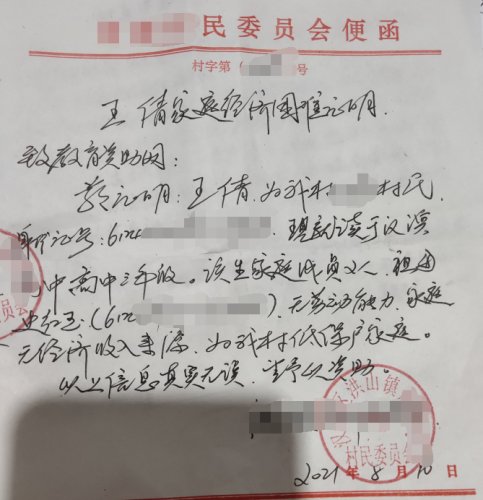 民委员会便函
村字第( 号
王倩家庭经济困难证明
致教育资助网:
兹证明:王倩,为我村 村民,
身份证号:612 现就读于汉滨
中高中三年级。该生家庭成员2人,祖母
:(612 ),无劳动能力,家庭
无经济收入来源,为我村低保户家庭。
以上信息真实无误,望予以资助。
洪山镇
村民委员会
2021年8月10日